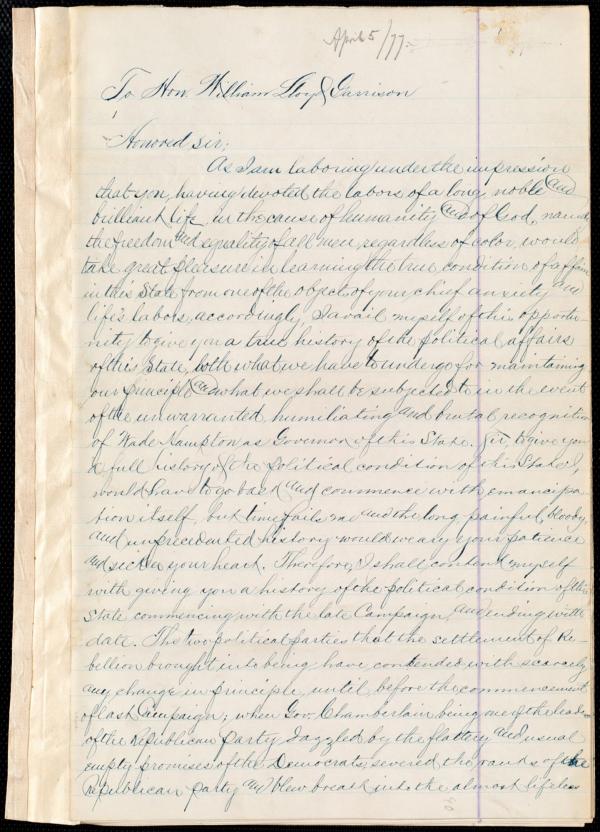 April 5/77.
To Hon. William Lloyd Garrison
Honored sir;
As I am laboring under the impression
that you, having devoted the labors of a long, noble and
brilliant life, in the cause of humanity and of God, namely
the freedom and equality of all men, regardless of color, would
take great pleasure in learning the true condition of affairs
in this State from one of the object of your chief anxiety and
life's labors, accordingly, I avail myself of this opportu-
nity to give you a true history of the political affairs
of this State, both what we have to undergo for maintaining
our principle and what we shall be subjected to in the event
of the unwarranted humiliating and brutal recognition
of Wade Hampton as Governor of this State. Sir, to give you
a full history of the political condition of this State I,
would have to go back and commence with emancipa-
tion itself, but time fails me and the long, painful, bloody,
and unprecedented history would weary your patience
and sicken your heart. Therefore, I shall content myself
with giving you a history of the political condition of this
State commencing with the late Campaign, and ending with
date. The two political parties that the settlement of Re-
bellion brought into being have contended with scarcely
any change in principle, until before the commencement
of last Campaign; when Gov. Chamberlain being one of the leaders
of the Republican Party dazzled by the flattery and usual
empty promises of the Democrats severed the ranks of the
Republican party and blew breath into the almost lifeless